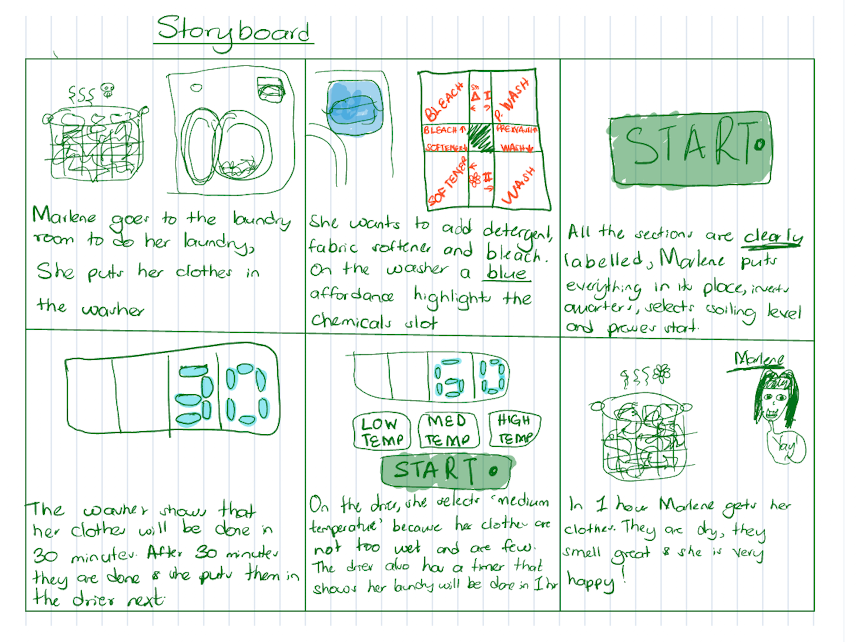 Storyboard
Marlene goes to the laundry
room to do her laundry,
She puts her clothes in
the washer
BLEACH
P. WASH
BLEACH↑
PREWASH↑
SOFTENER↓
WASH↓
SOFTENER
WASH
She wants to add detergent,
fabric softener and bleach.
On the washer a blue
affordance highlights the
chemicals slot
START
All the sections are clearly
labelled, Marlene puts
everything in its place, inserts
quarters, selects soiling level
and presses start.
30
The washer shows that
her clothes will be done in
30 minutes. After 30 minutes
they are done & she puts them in
the drier next.
60
LOW
TEMP
MED
TEMP
HIGH
TEMP
START
On the drier, she selects 'medium
temperature' because her clothes are
not too wet and are few.
The drier also has a timer that
shows her laundry will be done in 1 hr
Marlene
Yay!
In 1 hour Marlene gets her
clothes. They are dry, they
smell great & she is very
happy!